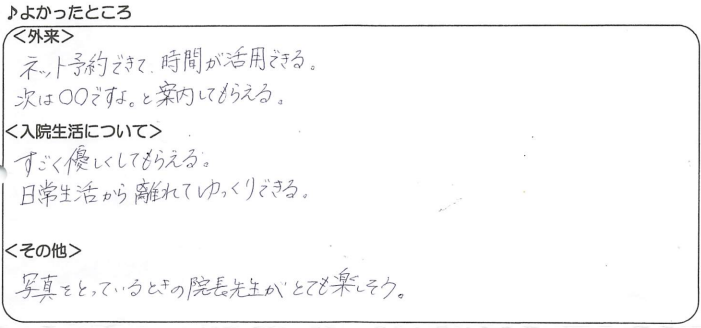 ♪よかったところ
<外来>
ネット予約できて、時間が活用できる。
次は〇〇ですよ。と案内してもらえる。
<入院生活について>
すごく優しくしてもらえる。
日常生活から離れてゆっくりできる。
<その他>
写真をとっているときの院長先生がとても楽しそう。